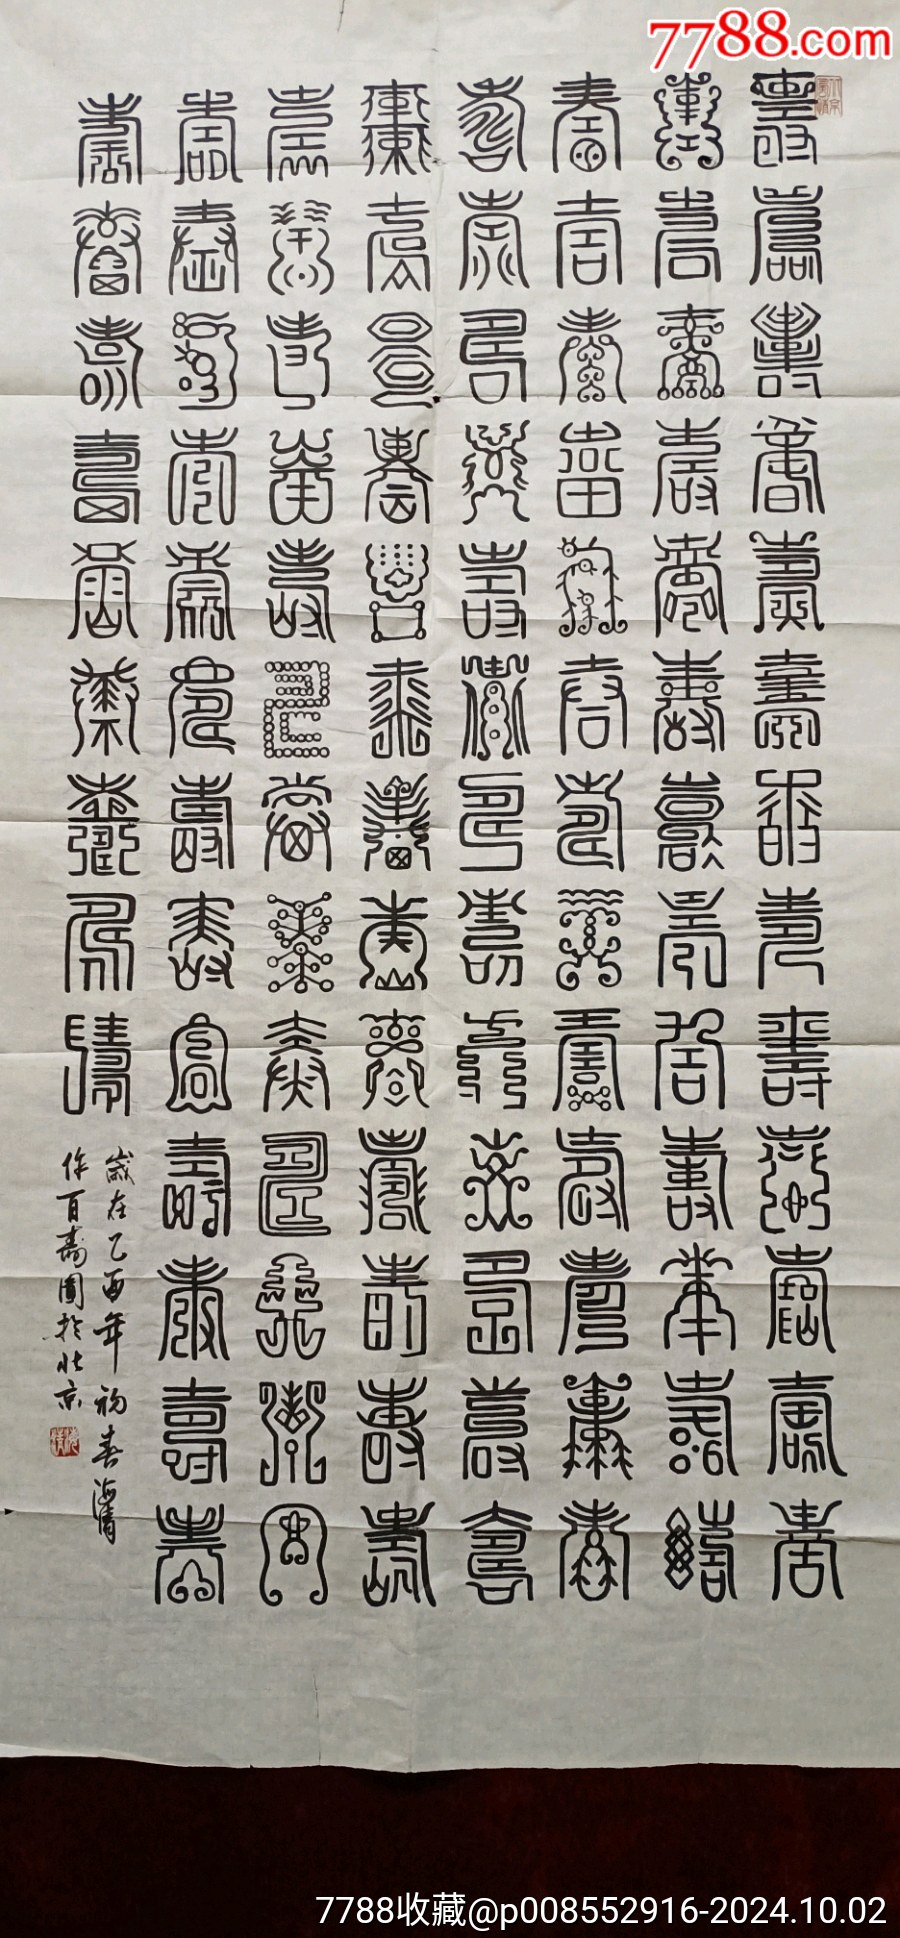 7788.com
壽壽壽壽壽壽壽壽壽壽壽壽壽
壽壽壽壽壽壽壽壽壽壽壽壽壽
壽壽壽壽壽壽壽壽壽壽壽壽壽
壽壽壽壽壽壽壽壽壽壽壽壽壽
壽壽壽壽壽壽壽壽壽壽壽壽壽
壽壽壽壽壽壽壽壽壽壽壽壽壽
壽壽壽壽壽壽壽壽壽壽壽壽壽
壽壽壽壽壽壽壽壽壽
歲在乙酉年初春海清
作百壽圖於北京
7788收藏@p008552916-2024.10.02